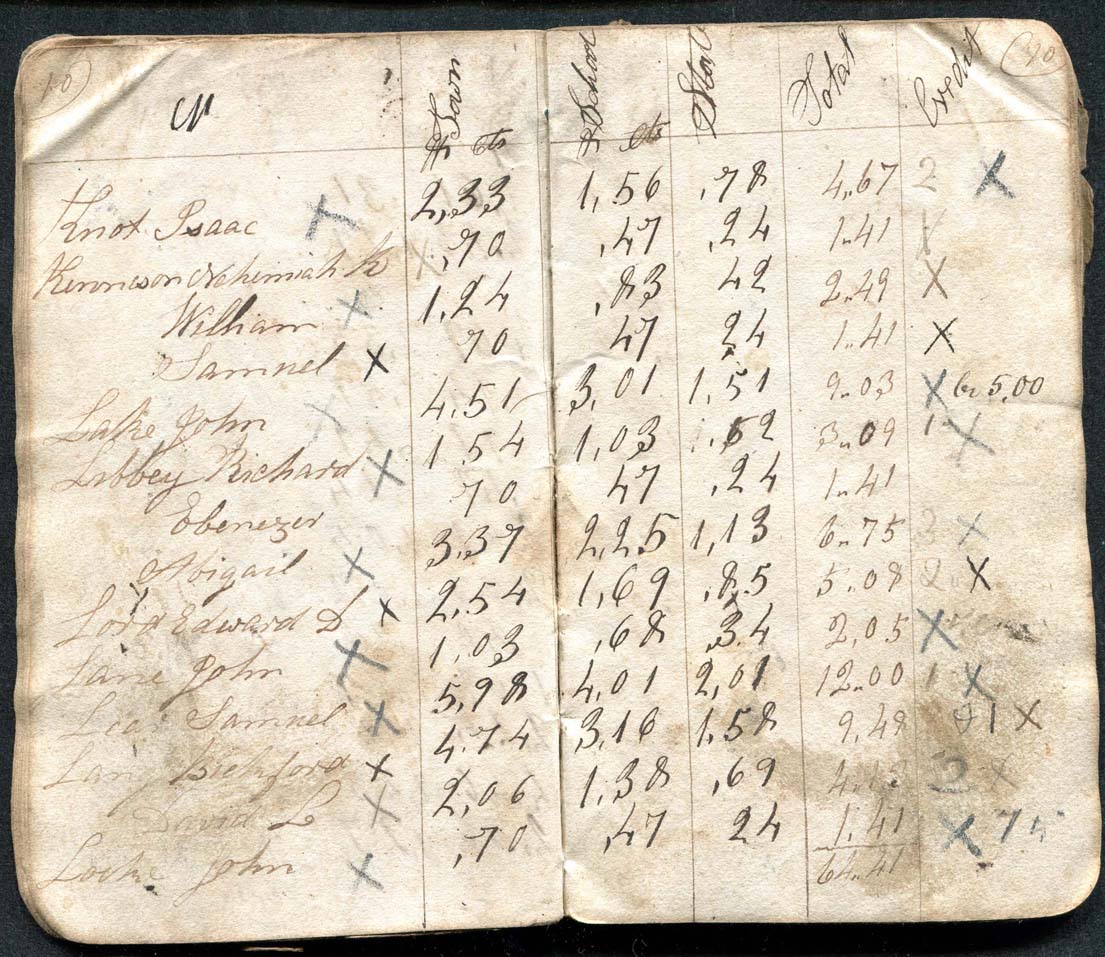 10) (10
Town School State Total Credit
$ cts $ cts
Knot Isaac X 2,33 1,56 ,78 4,,67 2 X
Kenneson Nehemiah K X ,70 ,47 ,24 1,,41 X
William X 1,24 ,83 42 2,,49 X
Samuel X 70 47 24 1,,41 X
Lake John X 4,51 3,01 1,51 9,,03 X 5,00
Libbey Richard X 1 54 1,03 ,52 3,,09 1 X
Ebenezer 70 47 ,24 1,,41
Abigail X 3,37 2,25 1,13 6,,75 3 X
Lord Edward D X 2,54 1,69 ,85 5,,08 2,, X
Lane John X 1,03 ,68 34 2,05 X
Samuel X 5,98 4,01 2,01 12,,00 1 X
Lang Bickford X 4,74 3,16 1,58 9,48 1 X
David L X 2,06 1,38 ,69 4,,13 3 X
Locke John X ,70 ,47 24 1,41 X
64,,41